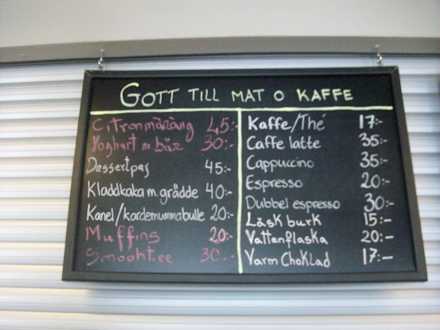 GOTT TILL MAT O KAFFE
Citronmaräng 45:-
Yoghurt m bär 30:-
Dessertpaj 45:-
Kladdkaka m grädde 40:-
Kanel/kardemummabulle 20:-
Muffins 20:-
Smoothiee 30:-
Kaffe/Thé 17:-
Caffe latte 35:-
Cappuccino 35:-
Espresso 20:-
Dubbel espresso 30:-
Läsk burk 15:-
Vattenflaska 20:-
Varm Choklad 17:-